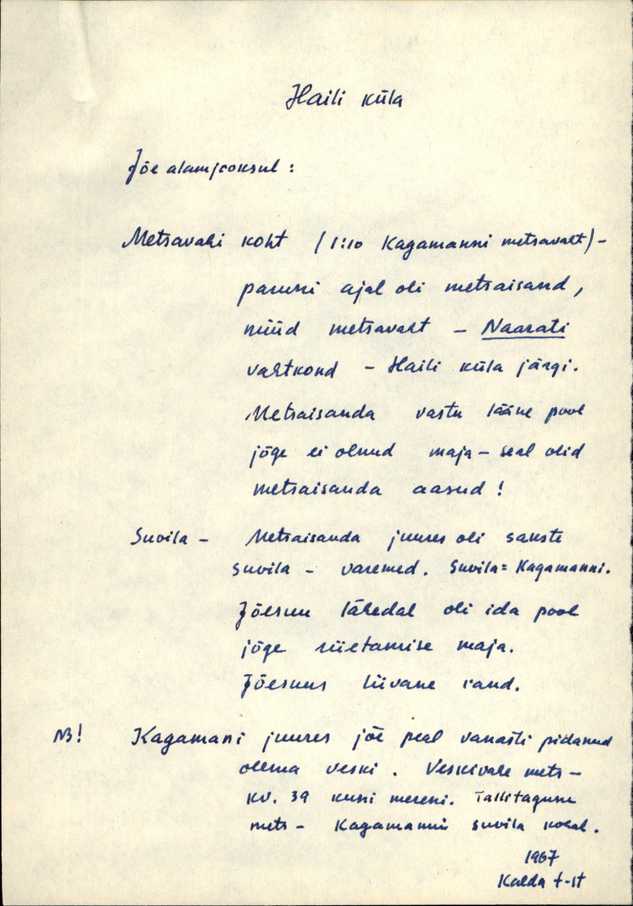 Haili küla
Jõe alamjooksul:
Metsavahi koht (1:10 Kagamanni metsavaht)-
paruni ajal oli metsaisand,
nüüd metsavaht - Naarati
vahtkond - Haili küla järgi.
Metsaisanda vastu lääne pool
jõge ei olnud maja - seal olid
metsaisanda aasud!
Suvila - Metsaisanda juures oli sakste
suvila - varemed. Suvila = Kagamanni.
Jõesuu lähedal oli ida pool
jõge riietamise maja.
Jõesuus liivane rand.
NB! Kagamani juures jõe peal vanasti pidanud
olema veski. Veskivahe mets -
kv. 39 kuni mereni. Tallitaguse
mets - Kagamanni suvila kohal.
1967
Kalda t-lt